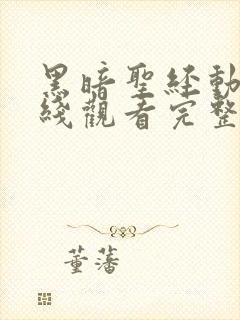 黑暗聖經動
綫觀看完整
董藩